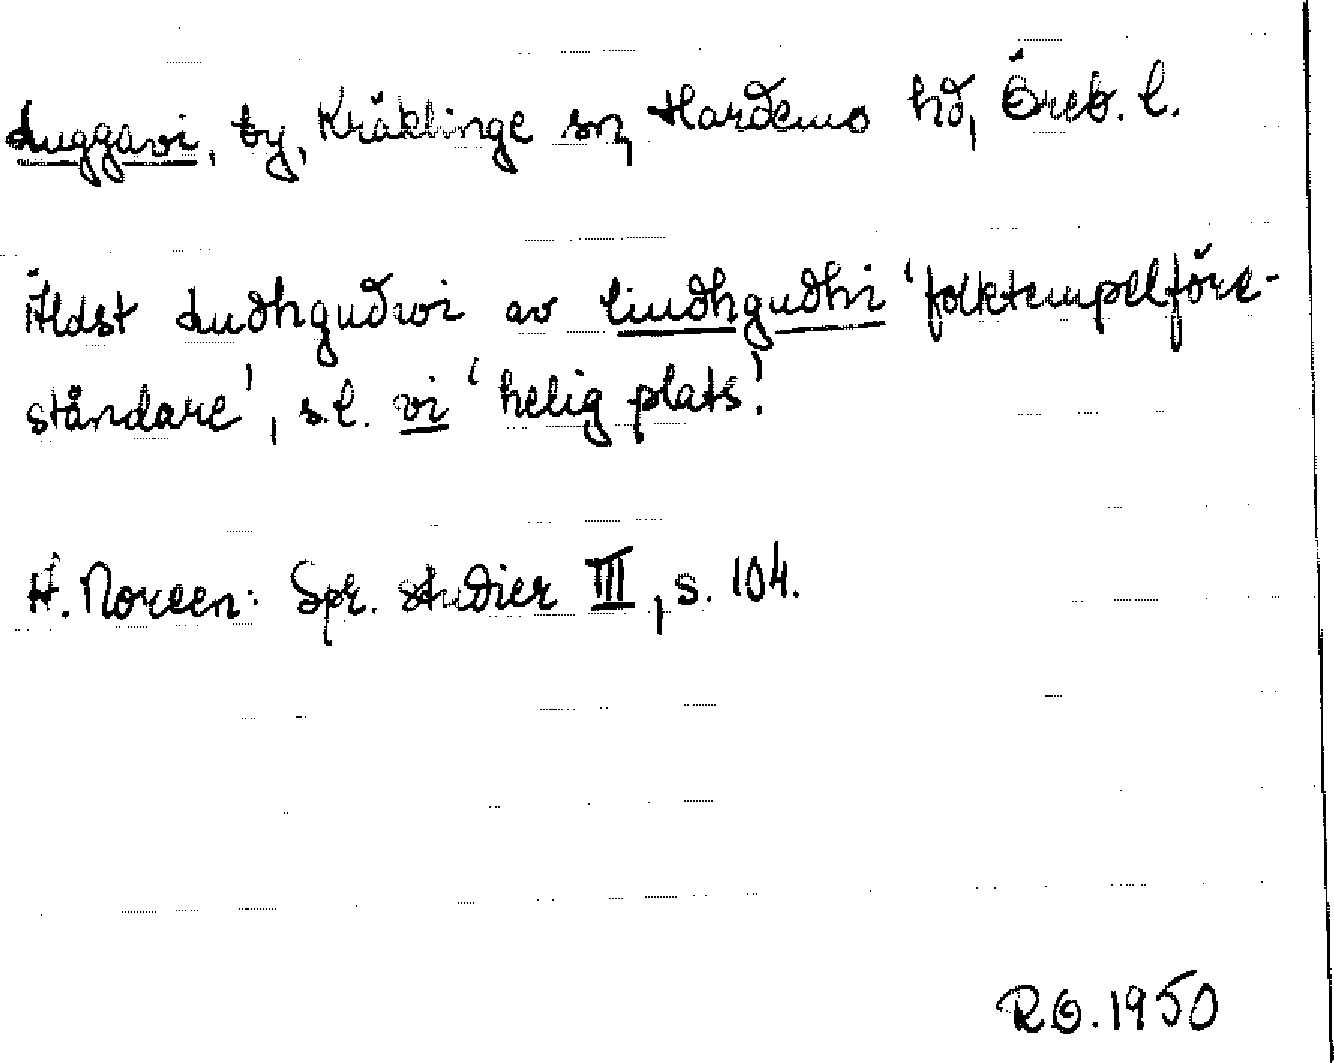 Luggavi, by, Kräklinge sn, Hardemo hd, Öreb. l.
Äldst Ludhgudwi av liudhgudhi 'folktempelföre-
ståndare', s.l. vi 'helig plats'.
A. Noreen: Spr. studier III, s. 104.
RO. 1950